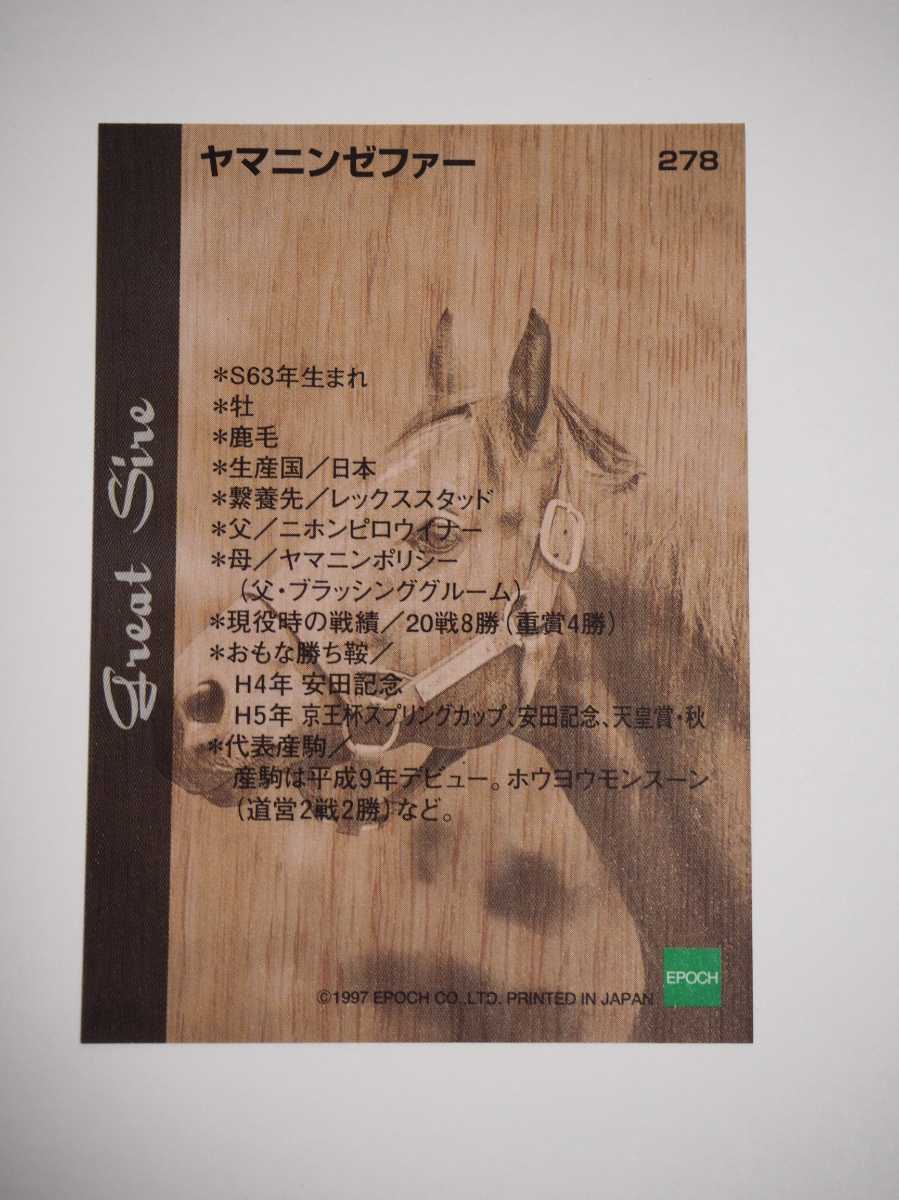 ヤマニンゼファー 278
Great Sire
*S63年生まれ
*牡
*鹿毛
*生産国/日本
*繋養先/レックススタッド
*父/ニホンピロウイナー
*母/ヤマニンポリシー
(父・ブラッシンググルーム)
*現役時の戦績/20戦8勝(重賞4勝)
*おもな勝ち鞍/
H4年 安田記念
H5年 京王杯スプリングカップ、安田記念、天皇賞・秋
*代表産駒/
産駒は平成9年デビュー。ホウヨウモンスーン
(道営2戦2勝)など。
EPOCH
©1997 EPOCH CO.,LTD. PRINTED IN JAPAN